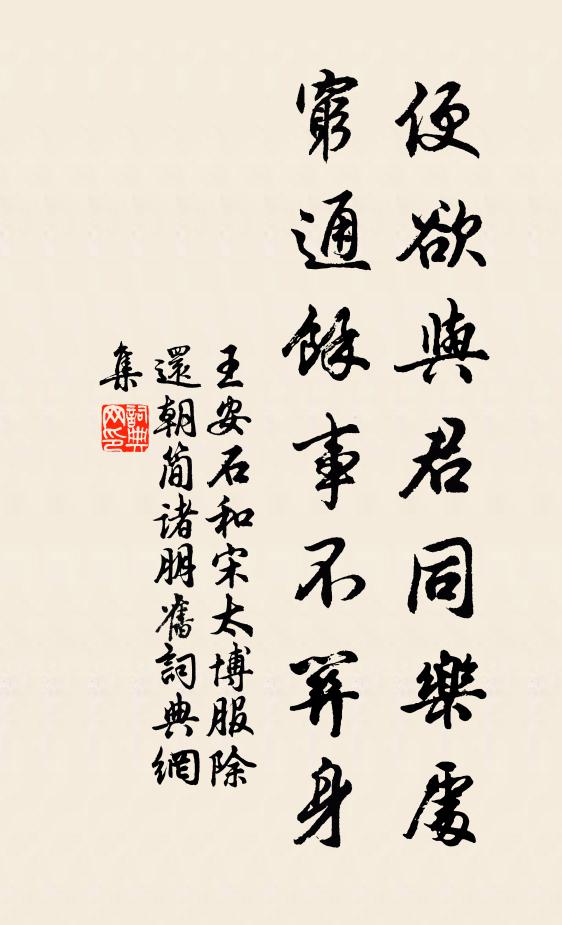 便欲與君同樂處
窮通餘事不關身
王安石和宋太博服除
還朝简诸朋舊詞典網
集
詞典
网印